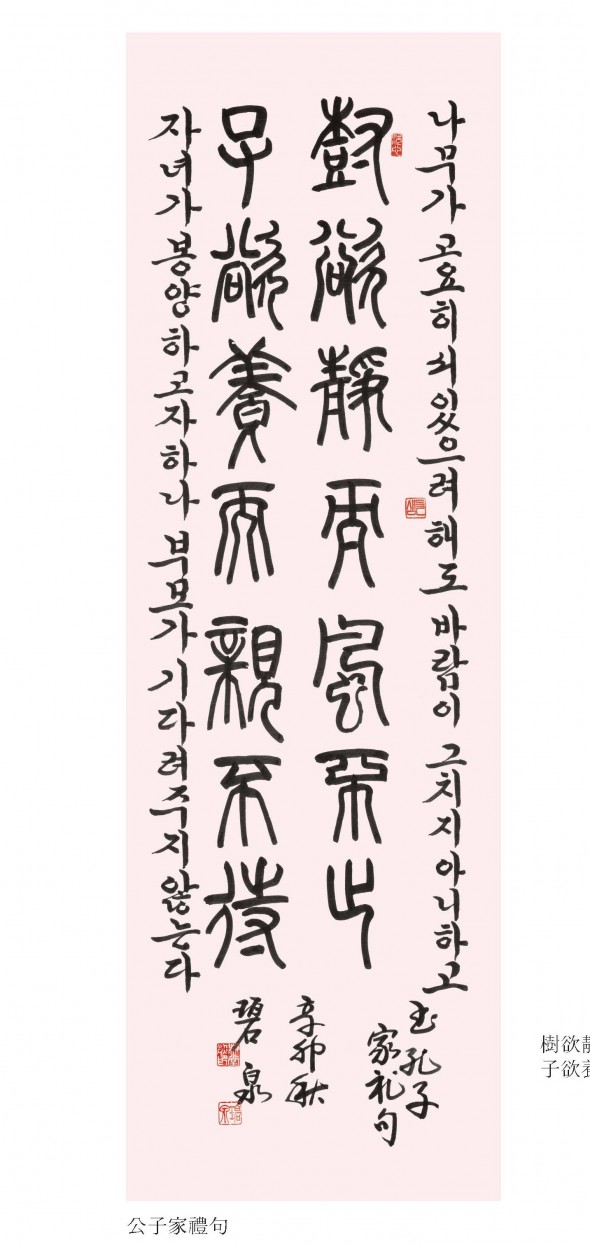 나무가 고요히 쉬이있으려 해도 바람이 그치지아니하고
樹欲靜而風不止
子欲養而親不待
자녀가 봉양하고자하나 부모가 기다려주지않는다
孔子
家礼句
辛卯秋
碧泉
樹欲靜
子欲養
公子家禮句